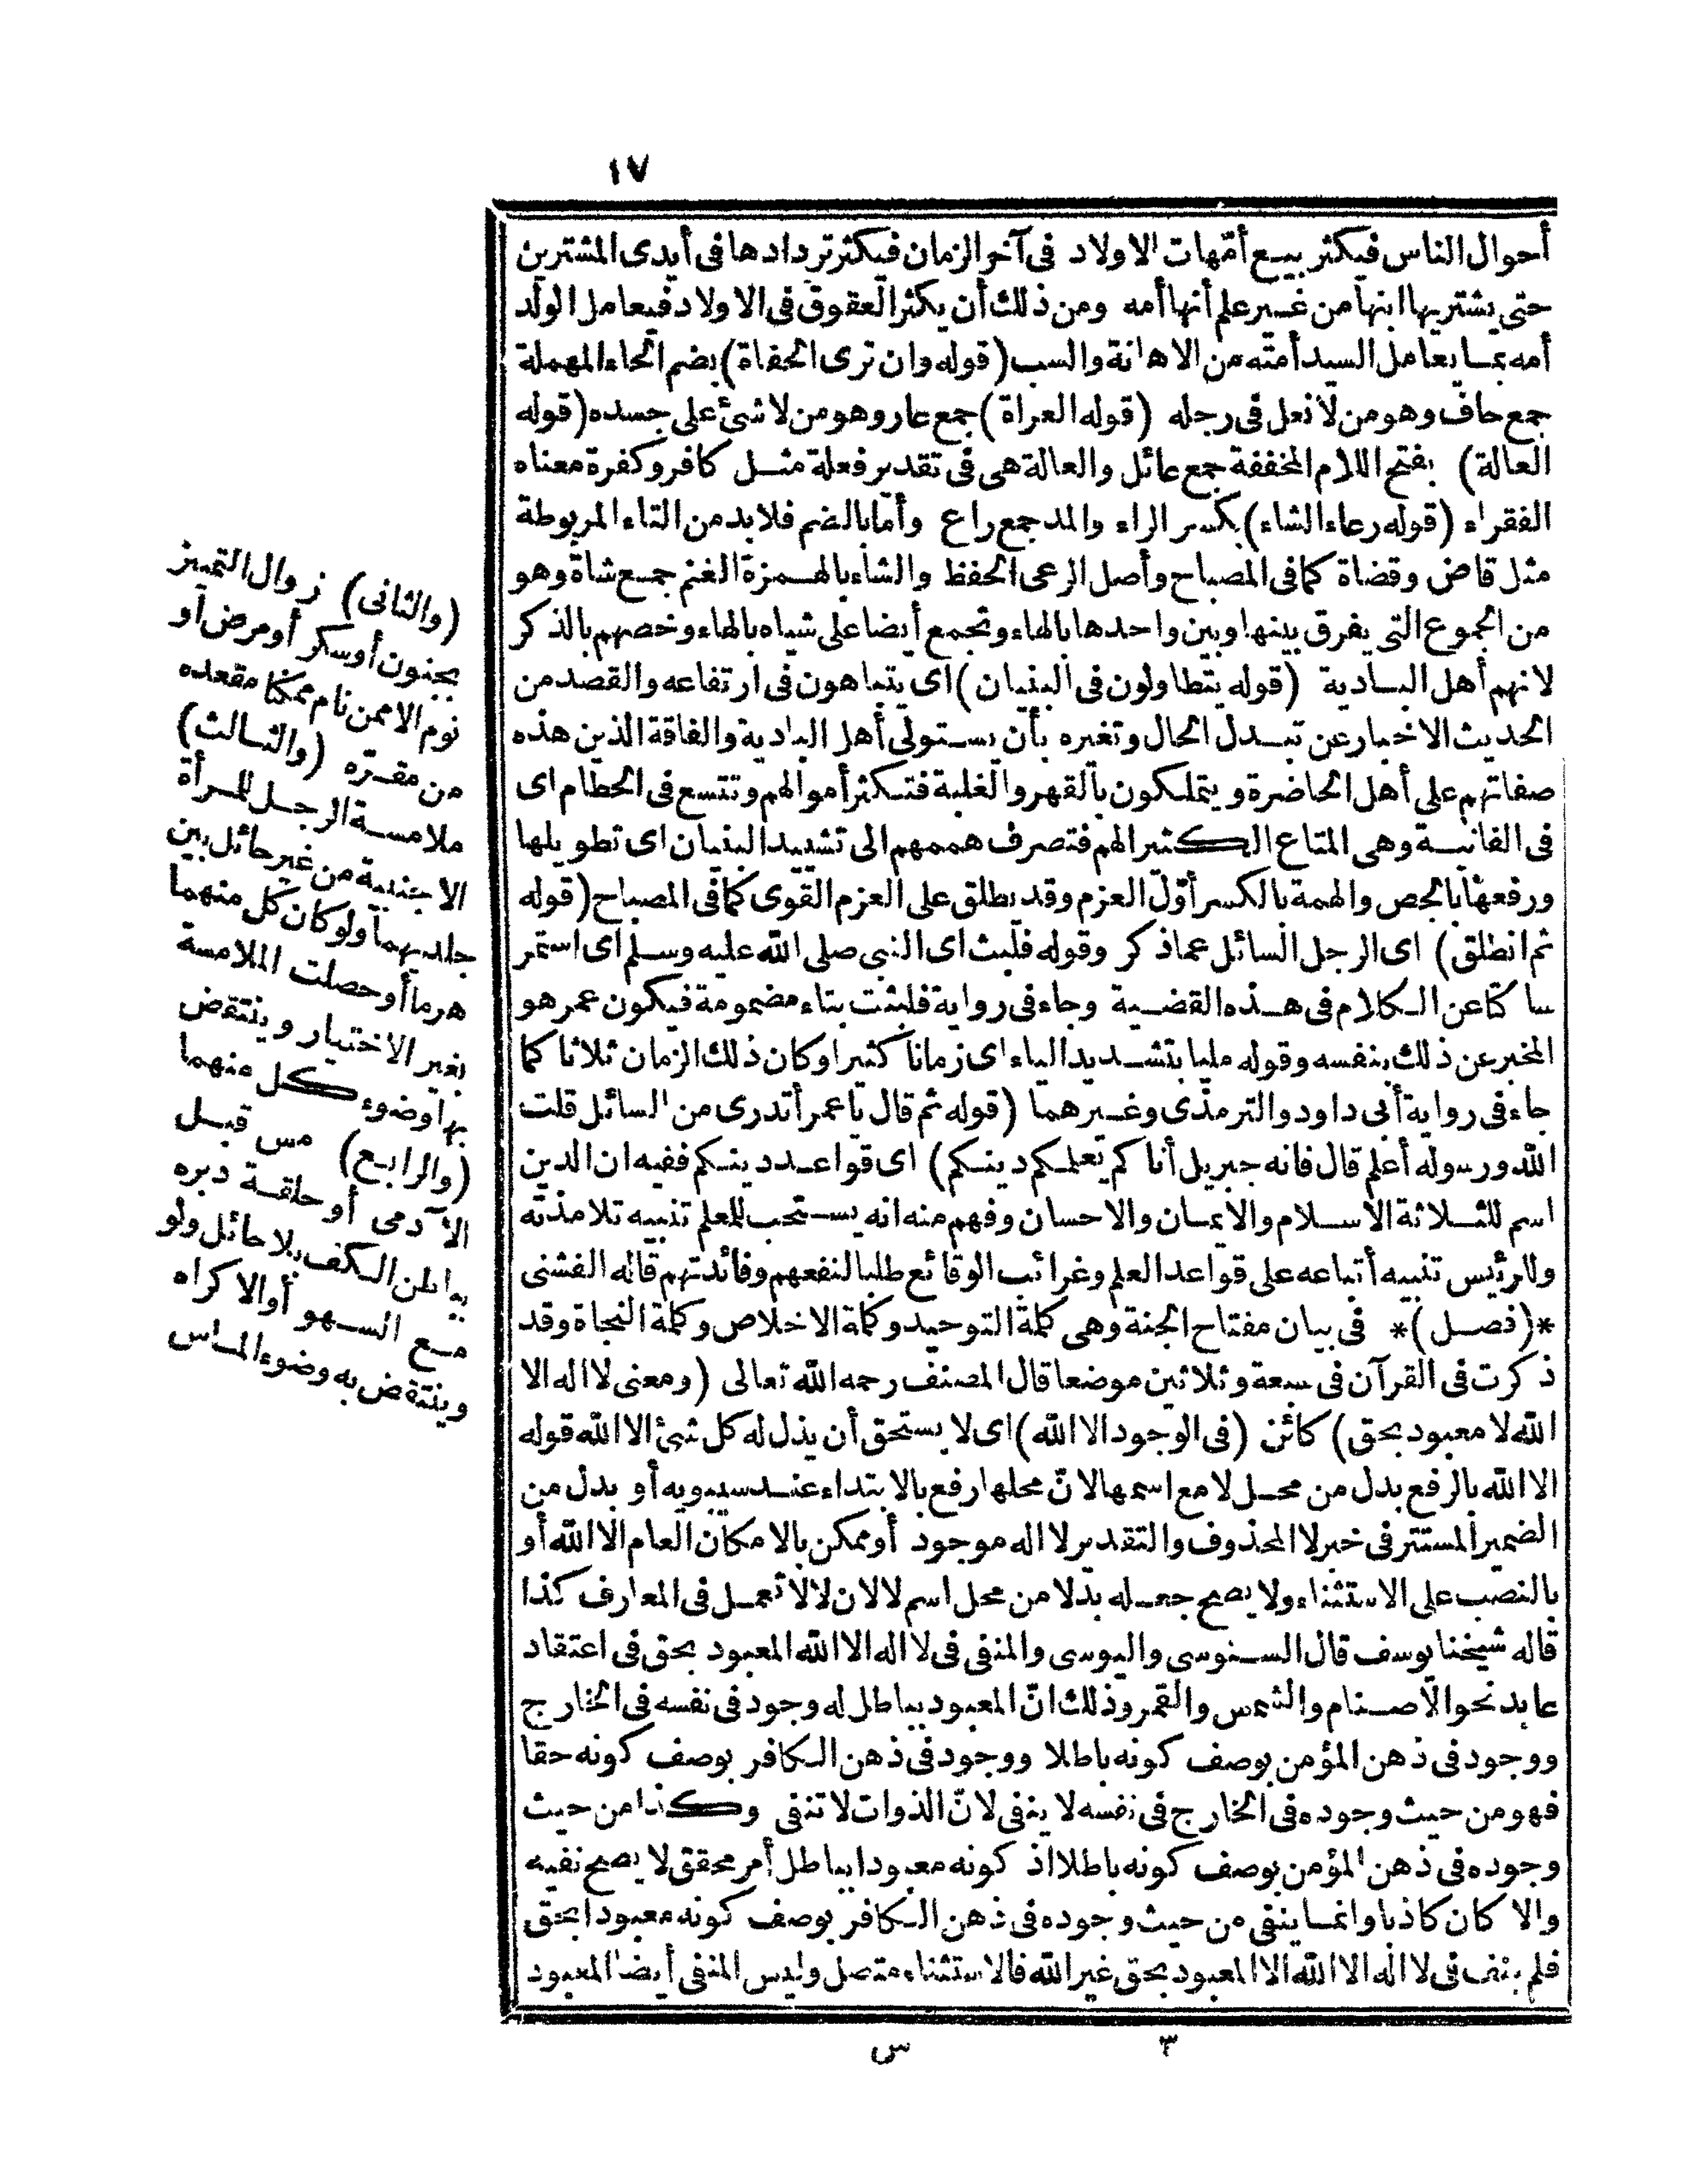 ١٧
أحوال الناس فيكثر بيع أمّهات الاولاد فى آخر الزمان فيكثر تردادها فى أيدى المشترين
حتى يشتريها ابنها من غير علم أنها أمه ومن ذلك أن يكثر العقوق فى الاولاد فيعامل الولد
أمه بما يعامل السيد أمته من الاهانة والسب (قوله وان ترى الحفاة) بضم الحاء المهملة
جمع حاف وهو من لا نعل فى رجله (قوله العراة) جمع عار وهو من لا شئ على جسده (قوله
العالة) بفتح اللام المخففة جمع عائل والعالة هى فى تقدير فعلة مثل كافر وكفرة معناه
الفقراء (قوله رعاء الشاء) بكسر الراء والمد جمع راع وأما بالضم فلا بد من التاء المربوطة
مثل قاض وقضاة كما فى المصباح وأصل الرعى الحفظ والشاء بالهمزة الغنم جمع شاة وهو
من الجموع التى يفرق بينها وبين واحدها بالهاء وتجمع أيضا على شياه بالهاء وخصهم بالذكر
لانهم أهل البادية (قوله يتطاولون فى البنيان) اى يتباهون فى ارتفاعه والقصد من
الحديث الاخبار عن تبدل الحال وتغيره بأن يستولى أهل البادية والفاقة الذين هذه
صفاتهم على أهل الحاضرة ويتملكون بالقهر والغلبة فتكثر أموالهم وتتسع فى الحطام اى
فى الفانية وهى المتاع الكثير الهم فتصرف هممهم الى تشييد البنيان اى تطويلها
ورفعها بالجص والهمة بالكسر أوّل العزم وقد يطلق على العزم القوى كما فى المصباح (قوله
ثم انطلق) اى الرجل السائل عما ذكر وقوله فلبث اى النبى صلى الله عليه وسلم اى استمر
ساكتا عن الكلام فى هذه القضية وجاء فى رواية فلبثت بتاء مضمومة فيكون عمر هو
المخبر عن ذلك بنفسه وقوله مليا بتشديد الياء اى زمانا كثيرا وكان ذلك الزمان ثلاثا كما
جاء فى رواية أبى داود والترمذى وغيرهما (قوله ثم قال يا عمر أتدرى من السائل قلت
الله ورسوله أعلم قال فانه جبريل أتاكم يعلمكم دينكم) اى قواعد دينكم ففيه ان الدين
اسم للثلاثة الاسلام والايمان والاحسان وفهم منه انه يستحب للمعلم تنبيه تلامذته
وللرئيس تنبيه أتباعه على قواعد العلم وغرائب الوقائع طلبا لنفعهم وفائدتهم قاله الفشنى
*(فصل)* فى بيان مفتاح الجنة وهى كلمة التوحيد وكلمة الاخلاص وكلمة النجاة وقد
ذكرت فى القرآن فى سبعة وثلاثين موضعا قال المصنف رحمه الله تعالى (ومعنى لا اله الا
الله لا معبود بحق) كائن (فى الوجود الا الله) اى لا يستحق أن يذل له كل شئ الا الله قوله
الا الله بالرفع بدل من محل لا مع اسمها لانّ محلها رفع بالابتداء عند سيبويه أو بدل من
الضمير المستتر فى خبر لا المحذوف والتقدير لا اله موجود أو ممكن بالامكان العام الا الله أو
بالنصب على الاستثناء ولا يصح جعله بدلا من محل اسم لا لان لا لا تعمل فى المعارف كذا
قاله شيخنا يوسف قال السنوسى واليوسى والمنفى فى لا اله الا الله المعبود بحق فى اعتقاد
عابد نحو الاصنام والشمس والقمر وذلك انّ المعبود بباطل له وجود فى نفسه فى الخارج
ووجود فى ذهن المؤمن بوصف كونه باطلا ووجود فى ذهن الكافر بوصف كونه حقا
فهو من حيث وجوده فى الخارج فى نفسه لا ينفى لانّ الذوات لا تنفى وكذا من حيث
وجوده فى ذهن المؤمن بوصف كونه باطلا اذ كونه معبودا بباطل أمر محقق لا يصح نفيه
والا كان كاذبا وانما ينفى من حيث وجوده فى ذهن الكافر بوصف كونه معبودا بحق
فلم ينف فى لا اله الا الله الا المعبود بحق غير الله فالاستثناء متصل وليس المنفى أيضا المعبود
(والثانى) زوال التمييز
بجنون أو سكر أو مرض أو
نوم الا ممن نام ممكنا مقعده
من مقرّه (والثالث)
ملامسة الرجل للمرأة
الاجنبية من غير حائل بين
جلديهما ولو كان كل منهما
هرما أو حصلت الملامسة
بغير الاختيار وينتقض
بها وضوء كل منهما
(والرابع) مس قبل
الآدمى أو حلقة دبره
بباطن الكف بلا حائل ولو
مع السهو أو الاكراه
وينتقض به وضوء الماس
٣ س